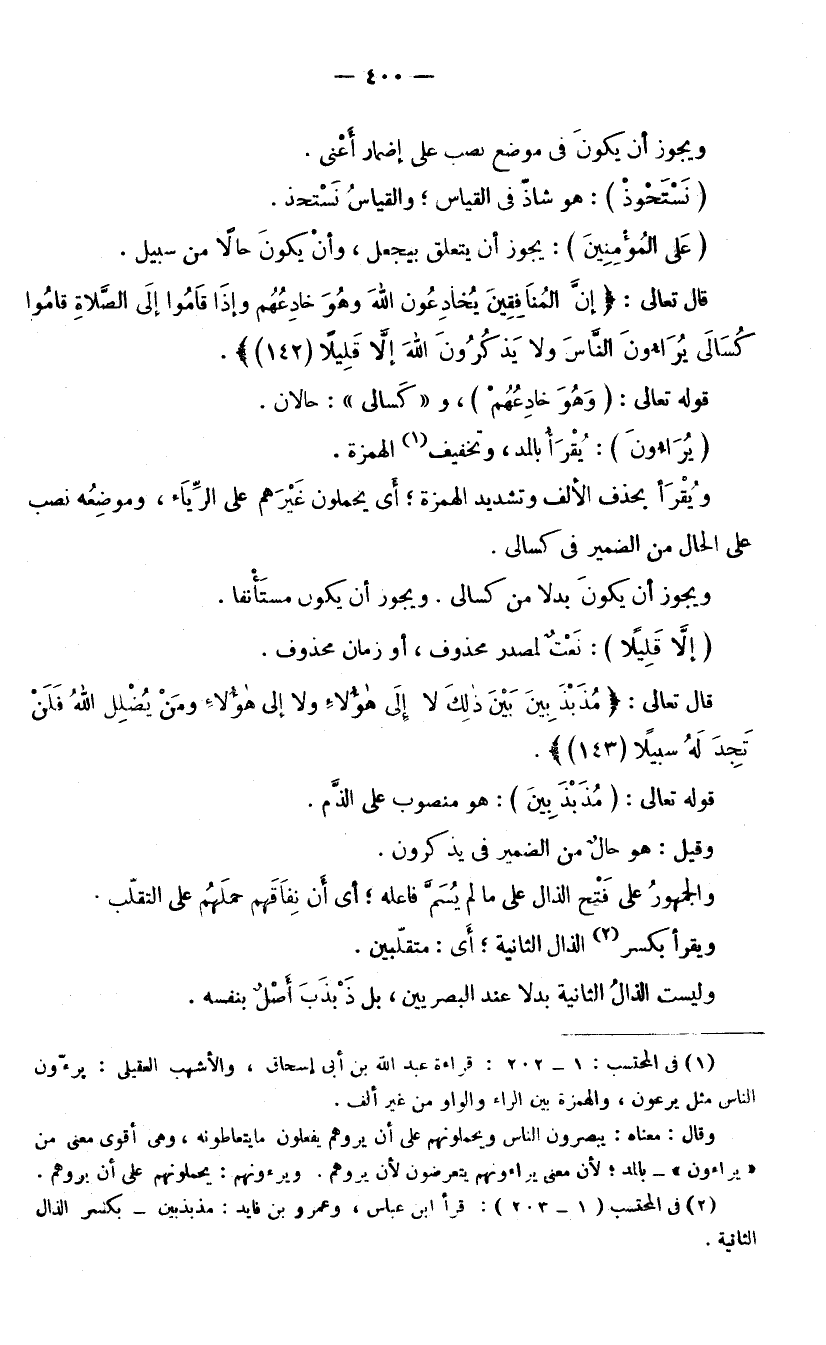 — ٤٠٠ —
ويجوز أن يكونَ فى موضع نصب على إضمار أَعْنى .
( نَسْتَحْوِذْ ) : هو شاذّ فى القياس ؛ والقياسُ نَسْتحذ .
( عَلَى المُؤْمِنِينَ ) : يجوز أن يتعلق بيجعل ، وأنْ يكونَ حالًا من سبيل .
قال تعالى : ﴿ إنَّ المُنَافِقِينَ يُخَادِعُون اللهَ وهُوَ خادِعُهُم وإذَا قَامُوا إلَى الصَّلَاةِ قامُوا
كُسَالَى يُرَاءُونَ النَّاسَ ولا يَذكُرُونَ اللهَ إلَّا قَلِيلًا (١٤٢) ﴾ .
قوله تعالى : ( وَهُوَ خادِعُهُمْ ) ، و « كَسالى » : حالان .
( يُرَاءُونَ ) : يُقْرَأُ بالمد ، وتخفيف(١) الهمزة .
ويُقْرَأ بحذف الألف وتشديد الهمزة ؛ أى يحملون غَيْرَهم على الرِّيَاء ، وموضِعُه نصب
على الحال من الضمير فى كسالى .
ويجوز أن يكونَ بدلا من كسالى . ويجوز أن يكون مستَأْنفا .
( إلَّا قَلِيلًا ) : نَعْتٌ لمصدر محذوف ، أو زمان محذوف .
قال تعالى : ﴿ مُذَبْذَبِينَ بَيْنَ ذٰلِكَ لا إِلَى هٰؤُلاءِ ولا إلى هٰؤُلاءِ ومَنْ يُضْلِل اللهُ فَلَنْ
تَجِدَ لَهُ سبيلًا (١٤٣) ﴾ .
قوله تعالى : ( مُذَبْذَبِينَ ) : هو منصوب على الذَّم .
وقيل : هو حالٌ من الضمير فى يذكرون .
والجمهورُ على فَتْح الذال على ما لم يُسَمَّ فاعله ؛ أى أَن نِفَاقَهم حملَهُم على التقلّب .
ويقرأ بكسر(٢) الذال الثانية ؛ أَى : متقلّبين .
وليست الذالُ الثانية بدلا عند البصريين ، بل ذَبْذَبَ أَصْلٌ بنفسه .
(١) فى المحتسب : ١ – ٢٠٢ : قراءة عبد الله بن أبى إسحاق ، والأشهب العقيلى : يرءّون
الناس مثل يرعون ، والهمزة بين الراء والواو من غير ألف .
وقال : معناه : يبصرون الناس ويحملونهم على أن يروهم يفعلون مايتعاطونه ، وهى أقوى معنى من
« يراءون » – بالمد ؛ لأن معنى يراءونهم يتعرضون لأن يروهم . ويرءونهم : يحملونهم على أن يروهم .
(٢) فى المحتسب ( ١ – ٢٠٣ ) : قرأ ابن عباس ، وعمرو بن فايد : مذبذبين – بكسر الذال
الثانية .